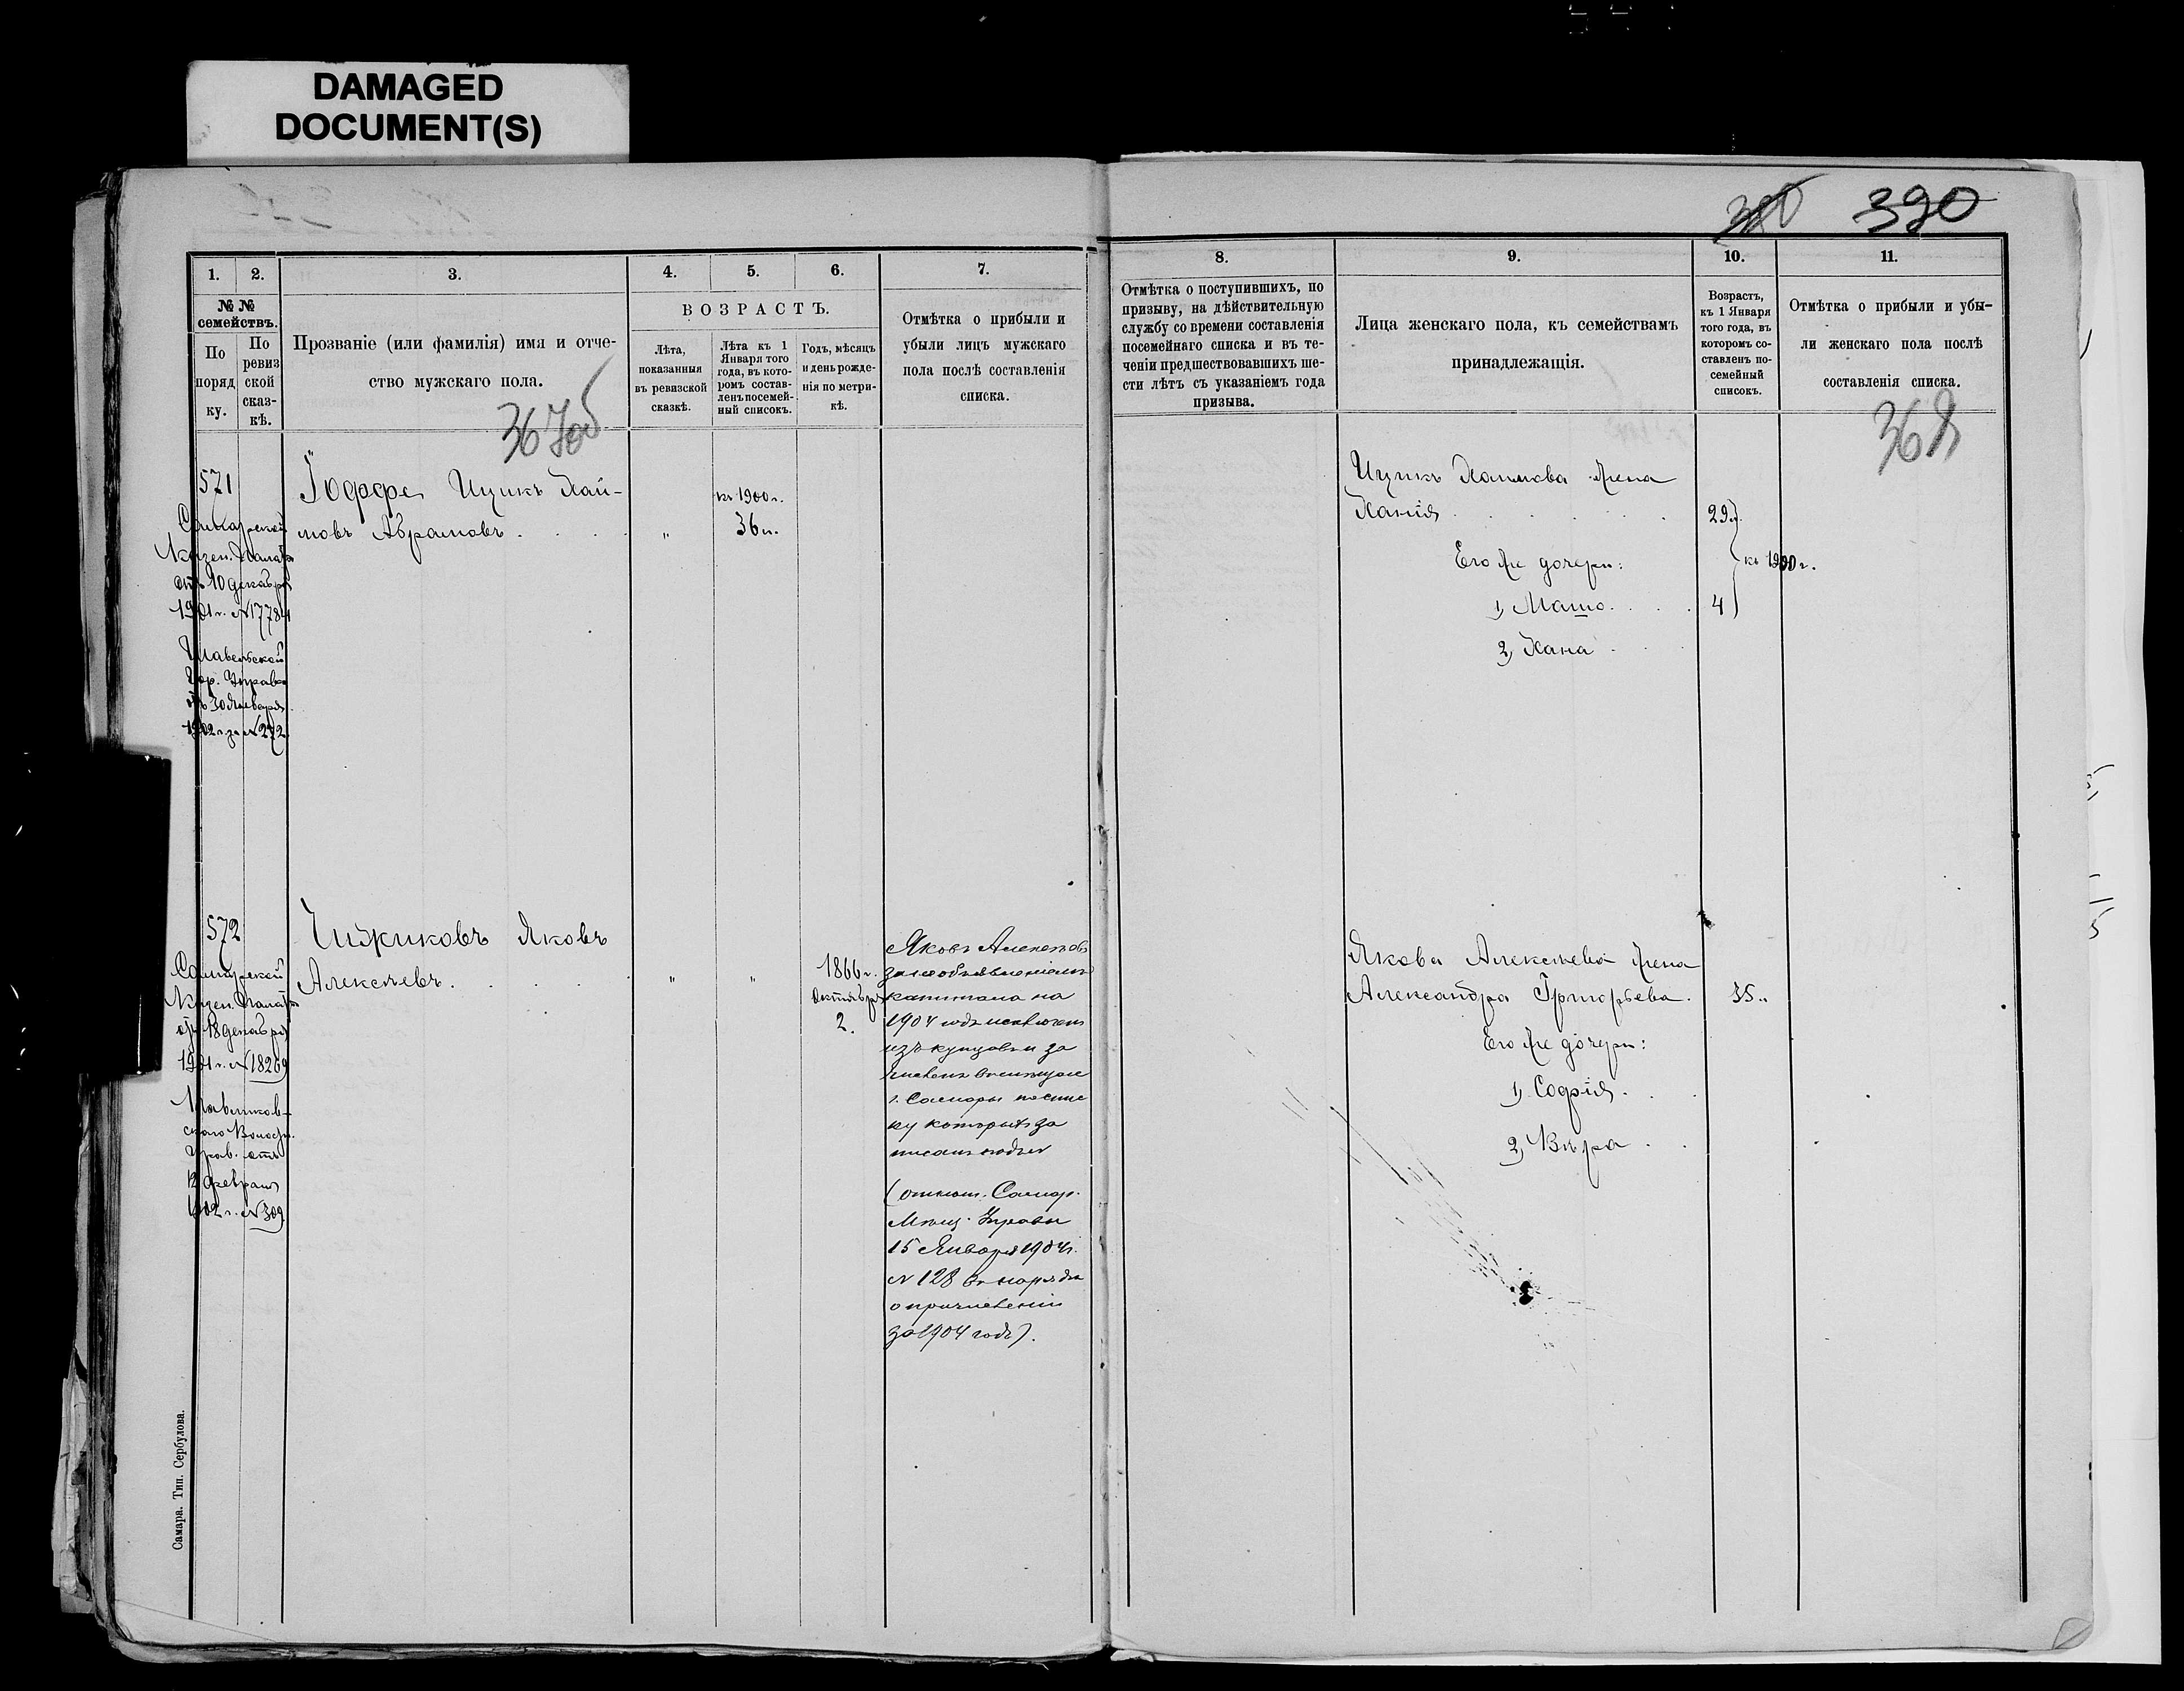 DAMAGED
DOCUMENT(S)
380 390
1. 2. 3. 4. 5. 6. 7.
№ №
семействъ.
По
поряд
ку.
По
ревиз
ской
сказ-
кѣ.
Прозваніе (или фамилія) имя и отче-
ство мужскаго пола.
367об
ВОЗРАСТЪ.
Лѣта,
показанныя
въ ревизской
сказкѣ.
Лѣта къ 1
Января того
года, въ кото-
ромъ состав-
ленъ посемей-
ный списокъ.
Годъ, мѣсяцъ
и день рожде-
нія по метри-
кѣ.
Отмѣтка о прибыли и
убыли лицъ мужскаго
пола послѣ составленія
списка.
8. 9. 10. 11.
Отмѣтка о поступившихъ, по
призыву, на дѣйствительную
службу со времени составленія
посемейнаго списка и въ те-
ченіи предшествовавшихъ ше-
сти лѣтъ съ указаніемъ года
призыва.
Лица женскаго пола, къ семействамъ
принадлежащія.
Возрастъ,
къ 1 Января
того года, въ
которомъ со-
ставленъ по-
семейный
списокъ.
Отмѣтка о прибыли и убы-
ли женскаго пола послѣ
составленія списка.
571
Самарской
Казен. Палаты
отъ 10 декабря
1901 г. № 17784
Шавельской
Гор. Управы
отъ 30 Января
1902 г. за № 272
Іоффе Ицикъ Хай-
мовъ Абрамовъ . . . .
"
къ 1900 г.
36 л.
Ицикъ Хаимова жена
Ханія . . . . . 29 л.
Его же дочери:
къ 1900 г.
1, Машо . . . 4
2, Хана . . .
572
Самарской
Казен. Палаты
отъ 18 декабря
1901 г. № 18269
Волостн.
Прав. отъ
12 февраля
1902 г. № 309
Чижиковъ Яковъ
Алексѣевъ . . . . .
" "
1866 г.
Октября
2.
Яковъ Алексѣевъ
за необъявленіемъ
капитала на
1904 годъ исключенъ
изъ купцовъ и за
численъ въ мѣщане
г. Самары по спис
ку которыхъ за
писанъ подъ №
(отнош. Самар.
Мѣщ. Управы
15 Января 1904 г.
№ 128 въ нарядѣ
о причисленіи
за 1904 годъ).
Якова Алексѣева жена
Александра Григорьева . 35 л.
Его же дочери:
1, Софія . . .
2, Вѣра . . .
Самара. Тип. Сербулова.